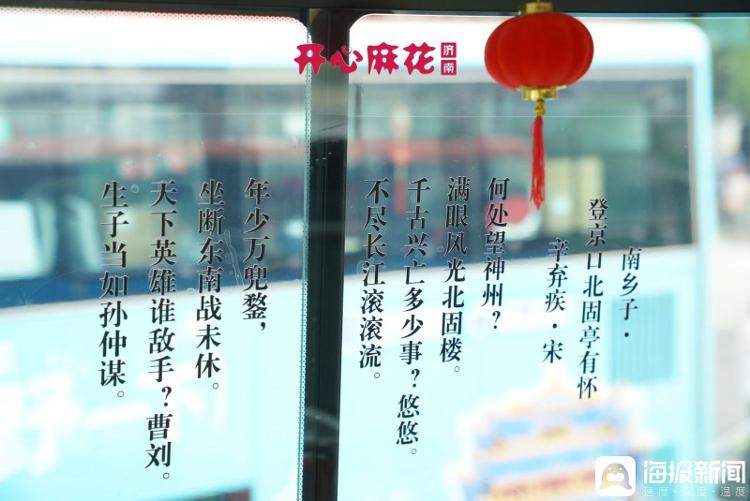 开心麻花
济南
南乡子·
登京口北固亭有怀
辛弃疾·宋
何处望神州？
满眼风光北固楼。
千古兴亡多少事？悠悠。
不尽长江滚滚流。
年少万兜鍪，
坐断东南战未休。
天下英雄谁敌手？曹刘。
生子当如孙仲谋。
海报新闻
速度·深度·温度